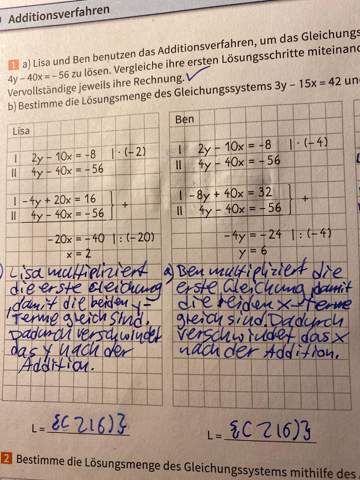 Additionsverfahren
1 a) Lisa und Ben benutzen das Additionsverfahren, um das Gleichungs
4y – 40x = – 56 zu lösen. Vergleiche ihre ersten Lösungsschritte miteinand
Vervollständige jeweils ihre Rechnung.
b) Bestimme die Lösungsmenge des Gleichungssystems 3y – 15x = 42 un
Lisa
I 2y – 10x = –8 | · (–2)
II 4y – 40x = –56
I –4y + 20x = 16
II 4y – 40x = –56 +
–20x = –40 | : (–20)
x = 2
Lisa multipliziert
die erste Gleichung
damit die beiden y-
Terme gleich sind.
Dadurch verschwindet
das y nach der
Addition.
L = {(2|6)}
Ben
I 2y – 10x = –8 | · (–4)
II 4y – 40x = –56
I –8y + 40x = 32
II 4y – 40x = –56 +
–4y = –24 | : (–4)
y = 6
a) Ben multipliziert die
erste Gleichung damit
die beiden x-Terme
gleich sind. Dadurch
verschwindet das x
nach der Addition.
L = {(2|6)}
2 Bestimme die Lösungsmenge des Gleichungssystems mithilfe des